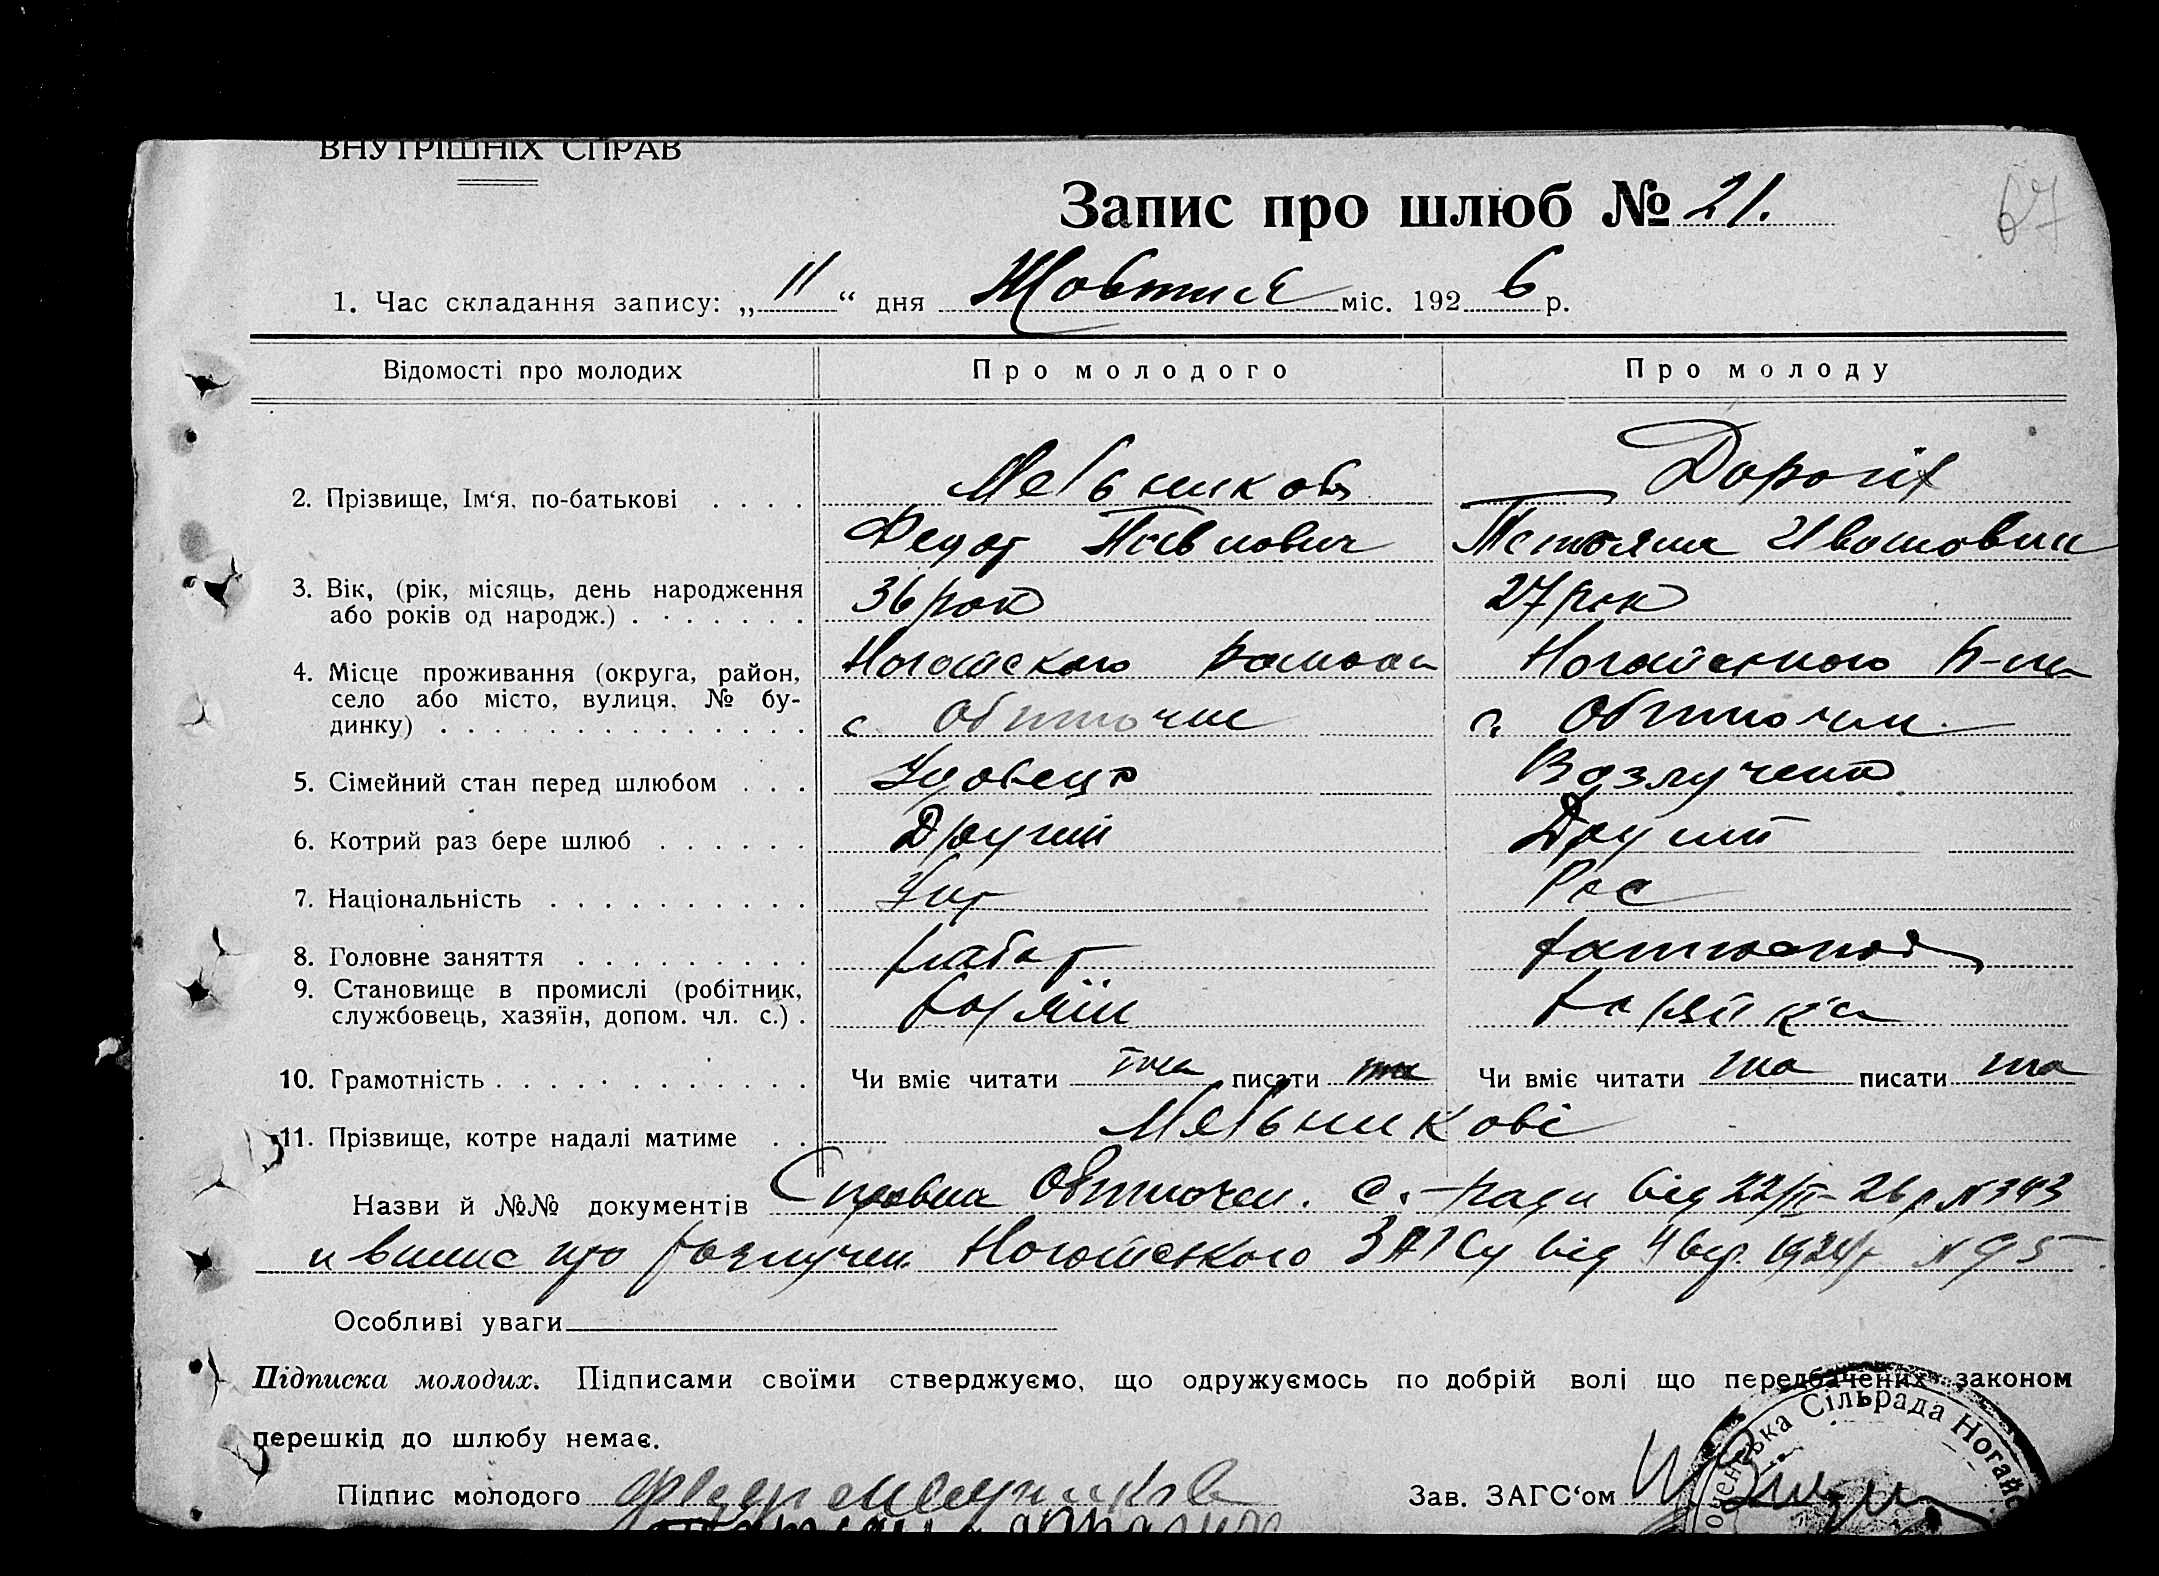 ВНУТРІШНІХ СПРАВ
67
Запис про шлюб № 21.
1. Час складання запису: „ 11 “ дня Жовтня міс. 192 6 р.
Відомості про молодих Про молодого Про молоду
2. Прізвище, Ім‘я, по-батькові . . . . Мельников Дорогіх
Федот Павлович Тетяна Ивановна
3. Вік, (рік, місяць, день народження 36 рок 27 рок
або років од народж.) . . . . . . .
4. Місце проживання (округа, район, Ногайского района Ногайського р-на
село або місто, вулиця, № бу-
динку) . . . . . . . . . . . . . . с. Обточне с. Обточни
5. Сімейний стан перед шлюбом . . . Удовець Розлучена
6. Котрий раз бере шлюб . . . . . . Другий Другий
7. Національність . . . . . . . . . . Укр Рос
8. Головне заняття . . . . . . . . . хлібор
9. Становище в промислі (робітник,
службовець, хазяїн, допом. чл. с.) . хазяїн хазяйка
10. Грамотність . . . . . . . . . . . . Чи вміє читати писати Чи вміє читати писати
11. Прізвище, котре надалі матиме . . Мельникові
Назви й №№ документів с.-ради від 22/ІІ-26 р. № 343
и випис про розлучен. Ногайського ЗАГСу від 4 вер. 1924 р № 95
Особливі уваги
Підписка молодих. Підписами своїми стверджуємо, що одружуємось по добрій волі що передбачених законом
перешкід до шлюбу немає.
Підпис молодого Зав. ЗАГС‘ом
оченська Сільрада Ногайс